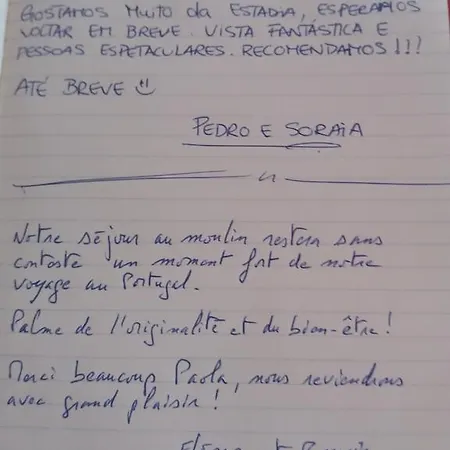 GOSTAMOS MUITO DA ESTADIA, ESPERAMOS
VOLTAR EM BREVE. VISTA FANTÁSTICA E
PESSOAS ESPETACULARES. RECOMENDAMOS!!!
ATÉ BREVE
PEDRO E SORAIA
Notre séjour au moulin restera sans
conteste un moment fort de notre
voyage au Portugal.
Palme de l'originalité et du bien-être!
Merci beaucoup Paola, nous reviendrons
avec grand plaisir!